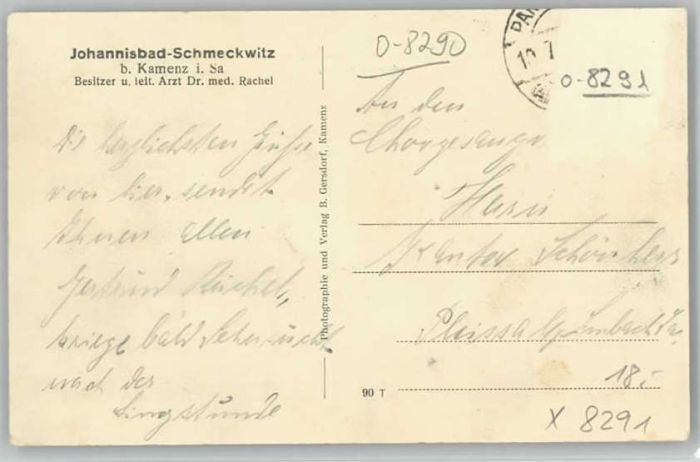 Johannisbad-Schmeckwitz
b. Kamenz i. Sa
Besitzer u. leit. Arzt Dr. med. Rachel
Die herzlichsten Grüße
von hier sendet
Ihnen allen
Gertrud
kriege bald Sehnsucht
nach der
Singstunde
Photographie und Verlag B. Gersdorf, Kamenz
0-8290
10. 7
0-8291
An den
Chorgesangv
Herrn
Kantor Schönherr
Pleissa
90 T
18.-
X 8291